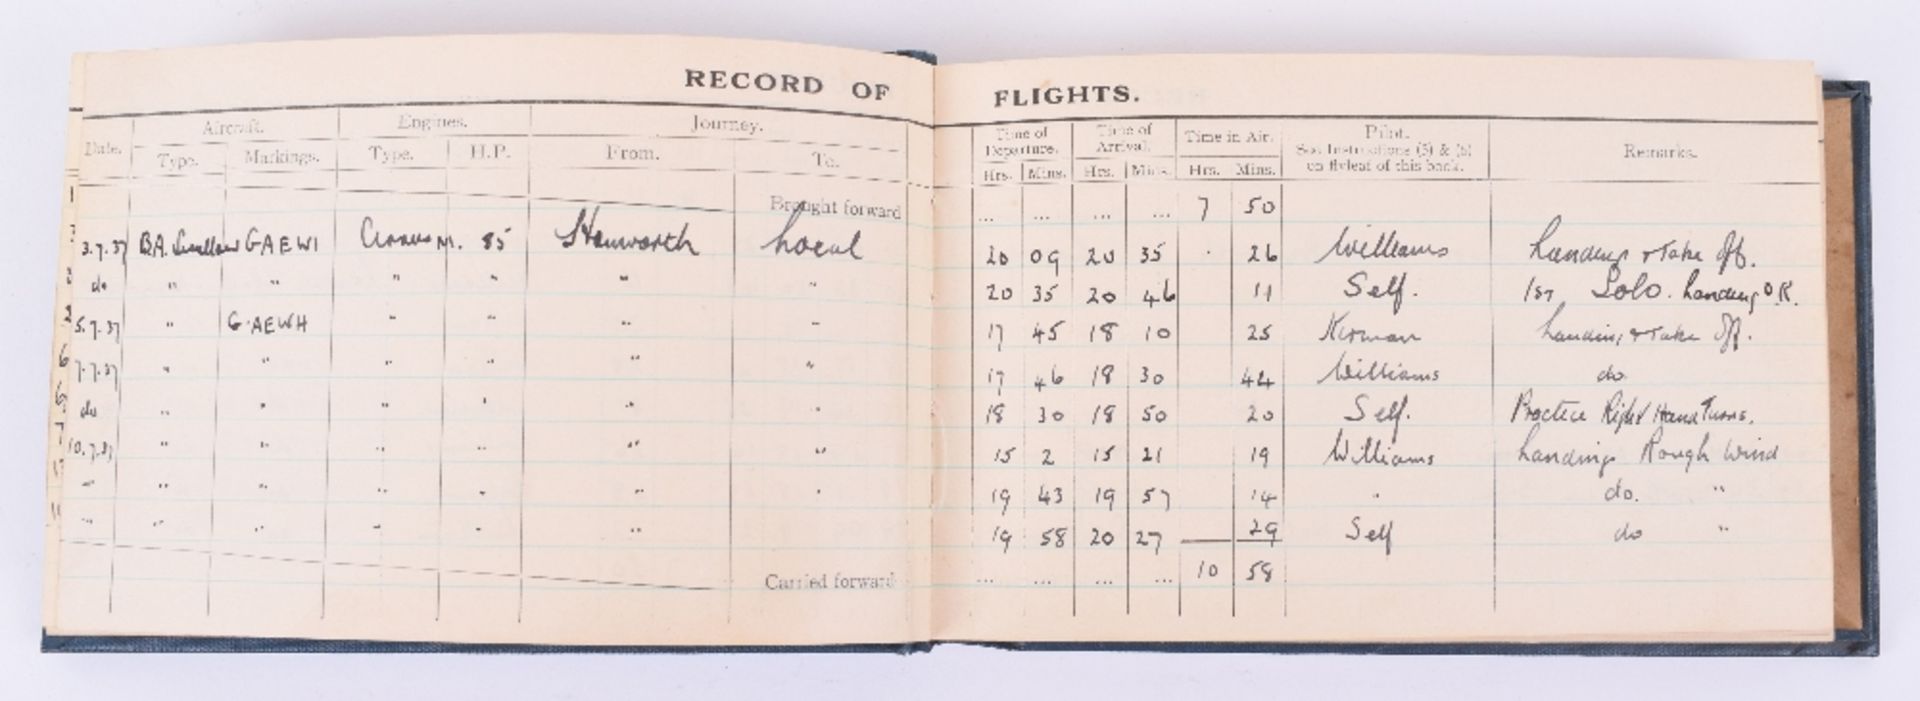 RECORD OF FLIGHTS.
Date. Aircraft. Engines. Journey. Time of Departure. Time of Arrival. Time in Air. Pilot. See Instructions (5) & (6) on flyleaf of this book. Remarks.
Type. Markings. Type. H.P. From. To. Hrs. Mins. Hrs. Mins. Hrs. Mins.
Brought forward ... ... ... ... 7 50
3.7.37 B.A. Swallow GAEWI Cirrus M. 85 Hanworth Local 20 09 20 35 . 26 Williams Landing & Take Off.
do " " " " " " 20 35 20 46 11 Self. 1st Solo. Landing O.K.
5.7.37 " G.AEWH " " " " 17 45 18 10 25 Kirman Landing & Take Off.
7.7.37 " " " " " " 17 46 18 30 44 Williams do
do " " " " " " 18 30 18 50 20 Self. Practice Right Hand Turns.
10.7.37 " " " " " " 15 2 15 21 19 Williams Landings Rough Wind
" " " " " " " 19 43 19 57 14 " do. "
" " " " " " 19 58 20 27 29 Self do "
Carried forward ... ... ... ... 10 58